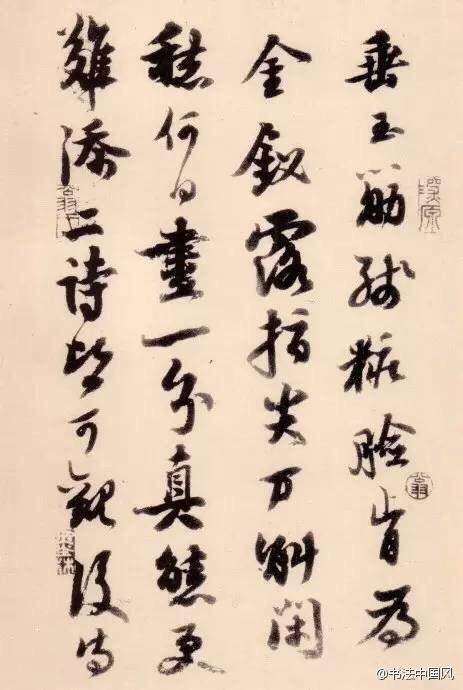 垂玉筯殘粧臉肯為
金釵露指尖万斛閑
愁何日盡一分真態更
難添二詩皆可觀後詩
@书法中国风